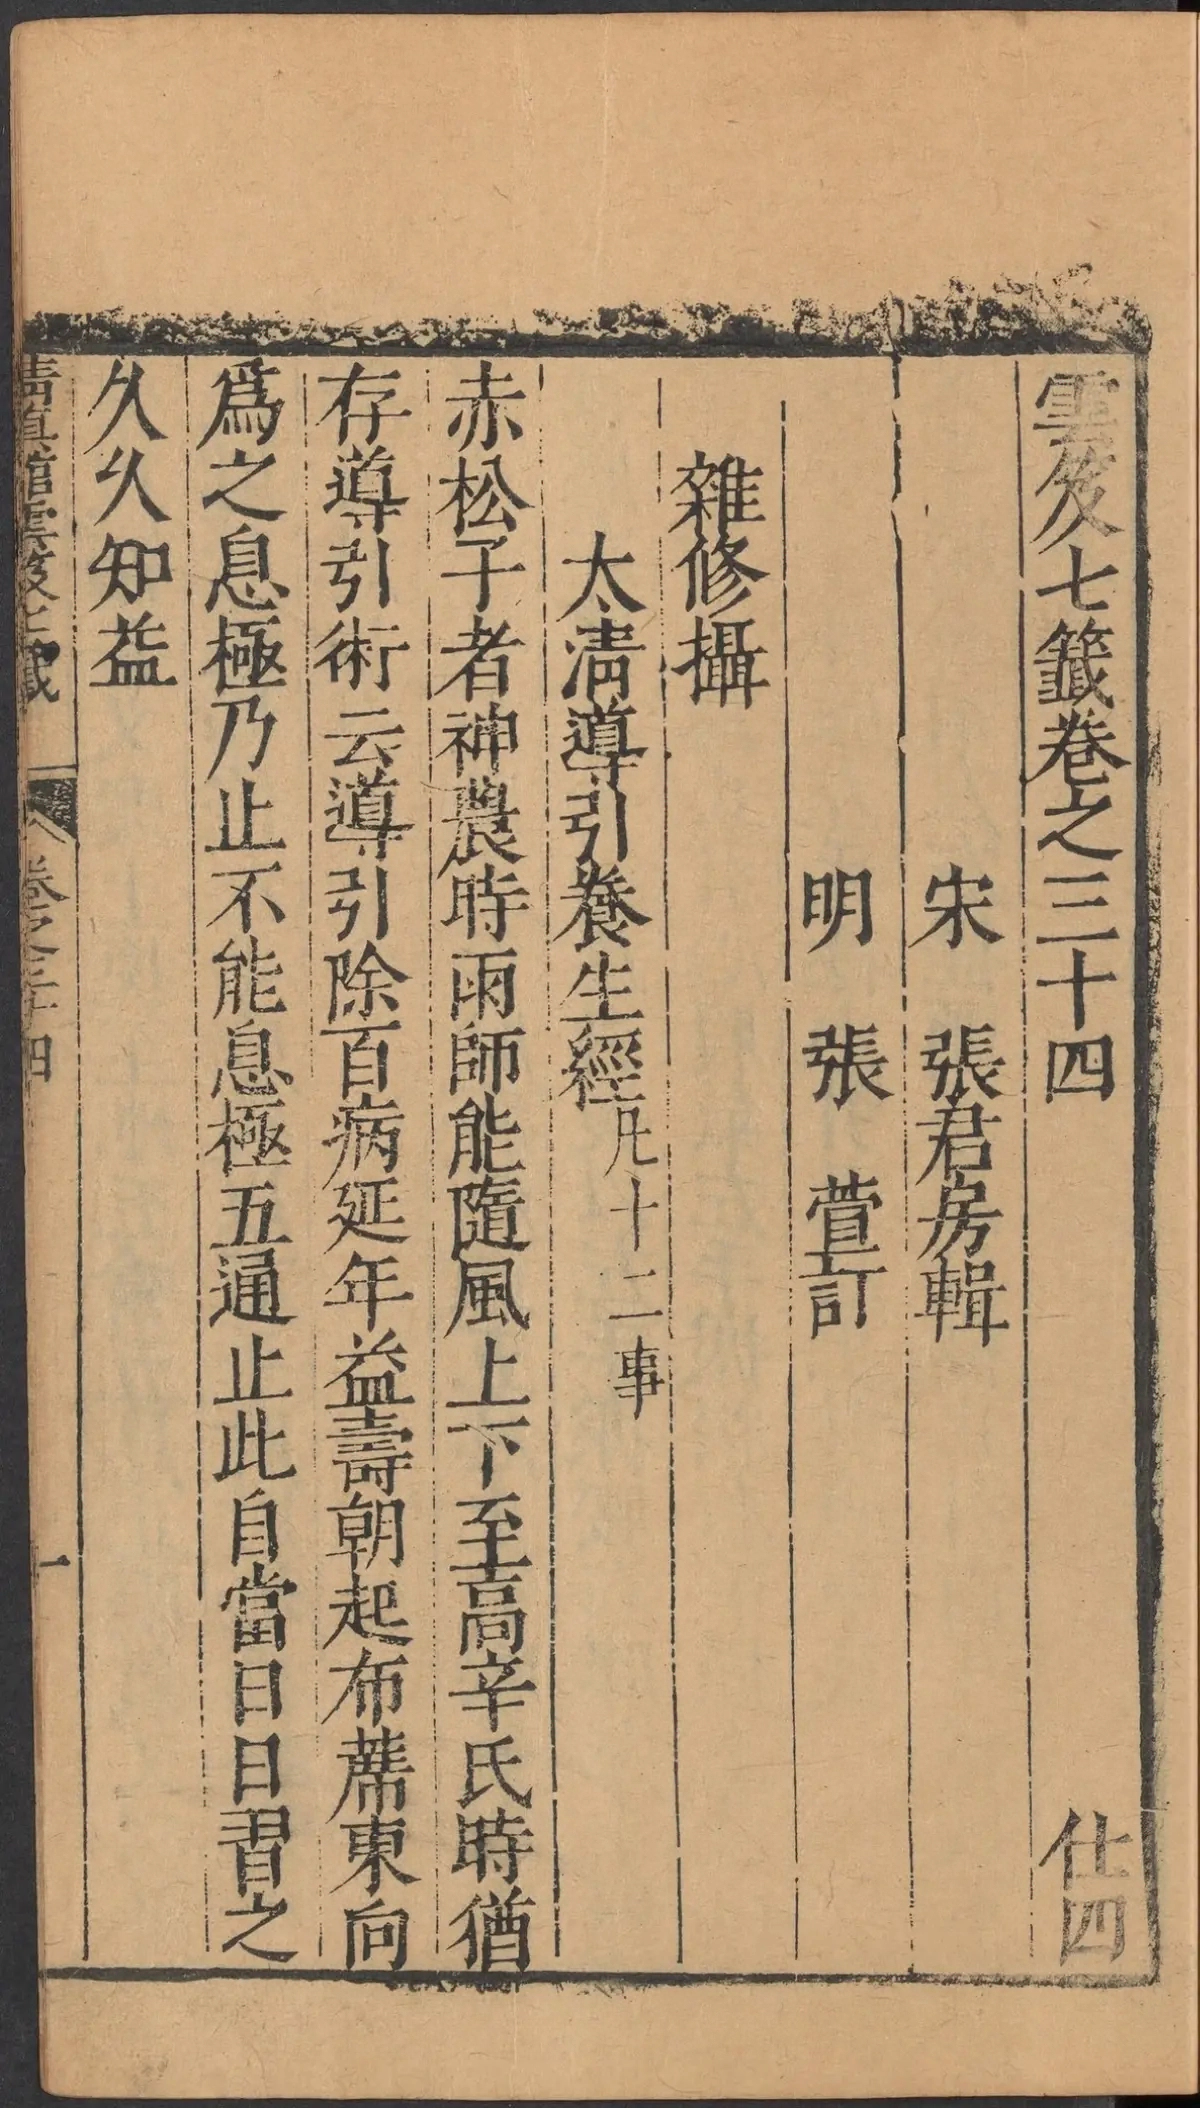 雲笈七籤卷之三十四 仕四
宋 張君房輯
明 張 萱訂
雜修攝
太清導引養生經凡十二事
赤松子者神農時雨師能隨風上下至高辛氏時猶
存導引術云導引除百病延年益壽朝起布蓆東向
爲之息極乃止不能息極五通止此自當日日習之
久久知益
清真館雲笈七籤 卷之三十四 一